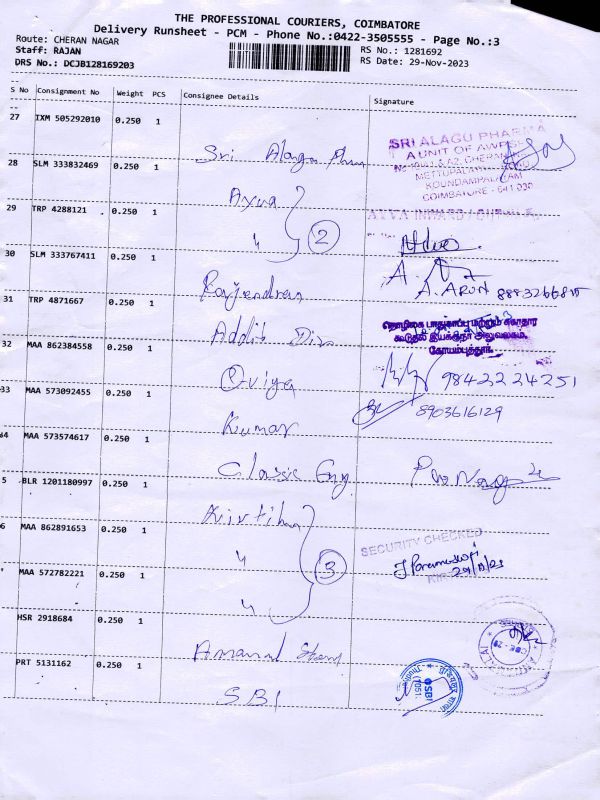 THE PROFESSIONAL COURIERS, COIMBATORE
Delivery Runsheet - PCM - Phone No.:0422-3505555 - Page No.:3
Route: CHERAN NAGAR
RS No.: 1281692
Staff: RAJAN
RS Date: 29-Nov-2023
DRS No.: DCJB128169203
S No Consignment No Weight PCS Consignee Details Signature
27 IXM 505292010 0.250 1
Sri Alagu
SRI ALAGU PHARMA
A UNIT OF
METTUPALAYAM ROAD
KOUNDAMPALAYAM
COIMBATORE - 641 030
28 SLM 333832469 0.250 1
29 TRP 4288121 0.250 1
2
30 SLM 333767411 0.250 1
Rajendran
A. ARUN
31 TRP 4871667 0.250 1
Addit Dir
தொழிலக பாதுகாப்பு மற்றும் சுகாதார
கூடுதல் இயக்குநர் அலுவலகம்,
கோயம்புத்தூர்.
32 MAA 862384558 0.250 1
Oviya
98422 24251
33 MAA 573092455 0.250 1
Kumar
8903616129
34 MAA 573574617 0.250 1
Classic Eng
5 BLR 1201180997 0.250 1
Kirtiha
6 MAA 862891653 0.250 1
3
SECURITY CHECKED
MAA 572782221 0.250 1
HSR 2918684 0.250 1
PRT 5131162 0.250 1
SBI
SBI